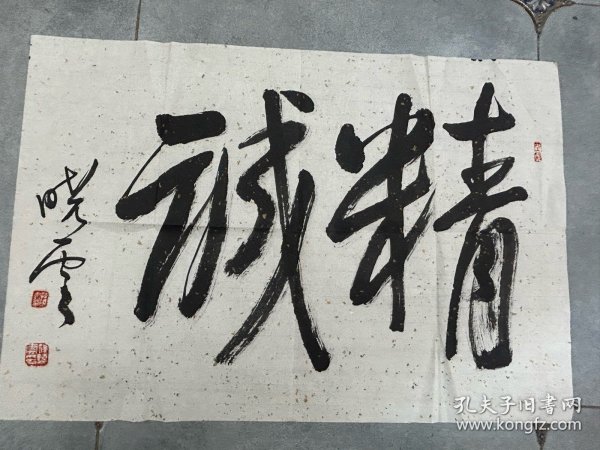 精誠
晓雲
孔夫子旧書网
www.kongfz.com